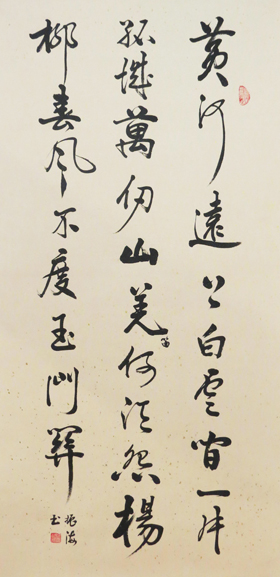 黄河遠上白雲間一片
孤城萬仞山羌笛何須怨楊
柳春風不度玉門關
振海
书